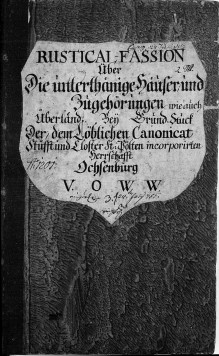 RUSTICAL-FASSION
Über
Die unterthänige Häuser und
Zugehörungen wie auch
Überländ: Bey Gründ Stück
Der dem Löblichen Canonicat
Stüfft und Closter St: Pölten incorporirten
Herrschafft
Ochsenburg
V. O. W. W.